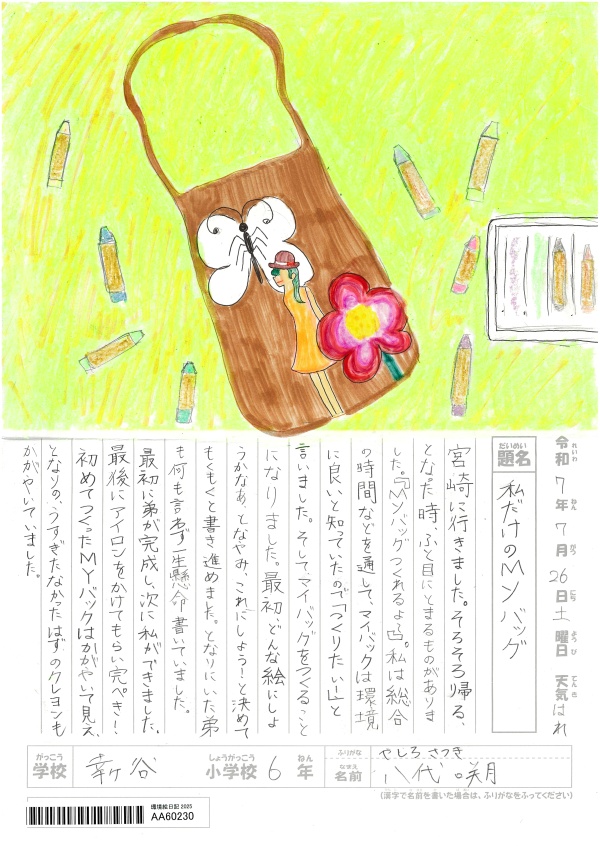 令和 7年 7月 26日 土曜日 天気 はれ
れいわ ねん がつ にち ようび てんき
だいめい
題名 私だけのMyバッグ
宮崎に行きました。そろそろ帰る、
となった時、ふと目にとまるものがありま
した。『Myバッグつくれるよ』。私は総合
の時間などを通して、マイバックは環境
に良いと知っていたので「つくりたい!」と
言いました。そしてマイバッグをつくること
になりました。最初、どんな絵にしよ
うかなぁ、となやみ、これにしよう!と決めて
もくもくと書き進めました。となりにいた弟
も何も言わず一生懸命書いていました。
最初に弟が完成し、次に私ができました。
最後にアイロンをかけてもらい完ぺき!
初めてつくったMYバックはかがやいて見え、
となりの、うすぎたなかったはずのクレヨンも
かがやいていました。
がっこう しょうがっこう ねん ふりがな やしろ さつき
学校 幸ヶ谷 小学校 6年 なまえ 名前 八代 咲月
(漢字で名前を書いた場合は、ふりがなをふってください)
環境絵日記 2025
AA60230